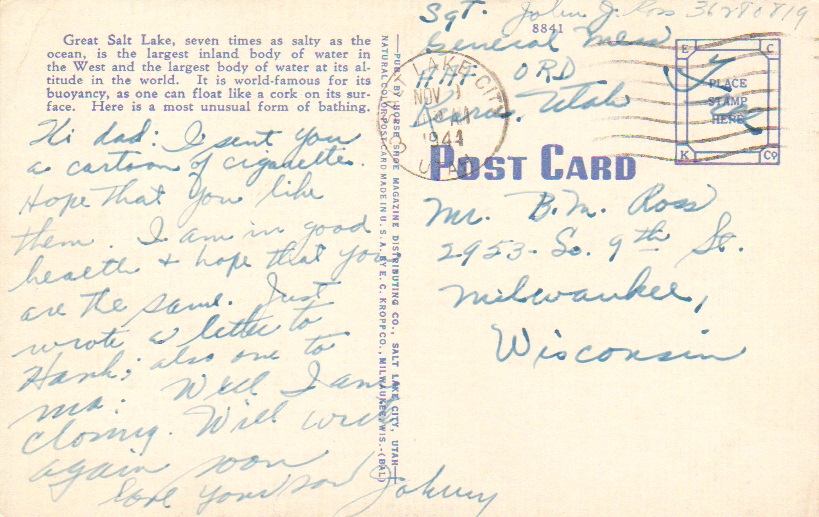 Great Salt Lake, seven times as salty as the
ocean, is the largest inland body of water in
the West and the largest body of water at its al-
titude in the world. It is world-famous for its
buoyancy, as one can float like a cork on its sur-
face. Here is a most unusual form of bathing.
Hi dad: I sent you
a cartoon of cigarettes.
Hope that you like
them. I am in good
health & hope that you
are the same. Just
wrote a letter to
Hank; also one to
ma. Well I am
closing. Will write
again soon
Love your son Johnny
PUB. BY MORSE SHOE MAGAZINE DISTRIBUTING CO., SALT LAKE CITY, UTAH
NATURAL COLOR POST CARD MADE IN U.S.A. BY E. C. KROPP CO., MILWAUKEE, WIS.-(BAL)
8841
Sgt. John J. Ross 36280819
General Mess
ORD
Kearns, Utah
Free
SALT LAKE CITY
NOV 21
1944
UTAH
E C
PLACE
STAMP
HERE
K Co
POST CARD
Mr. B.M. Ross
2953- So. 9th St.
Milwaukee,
Wisconsin